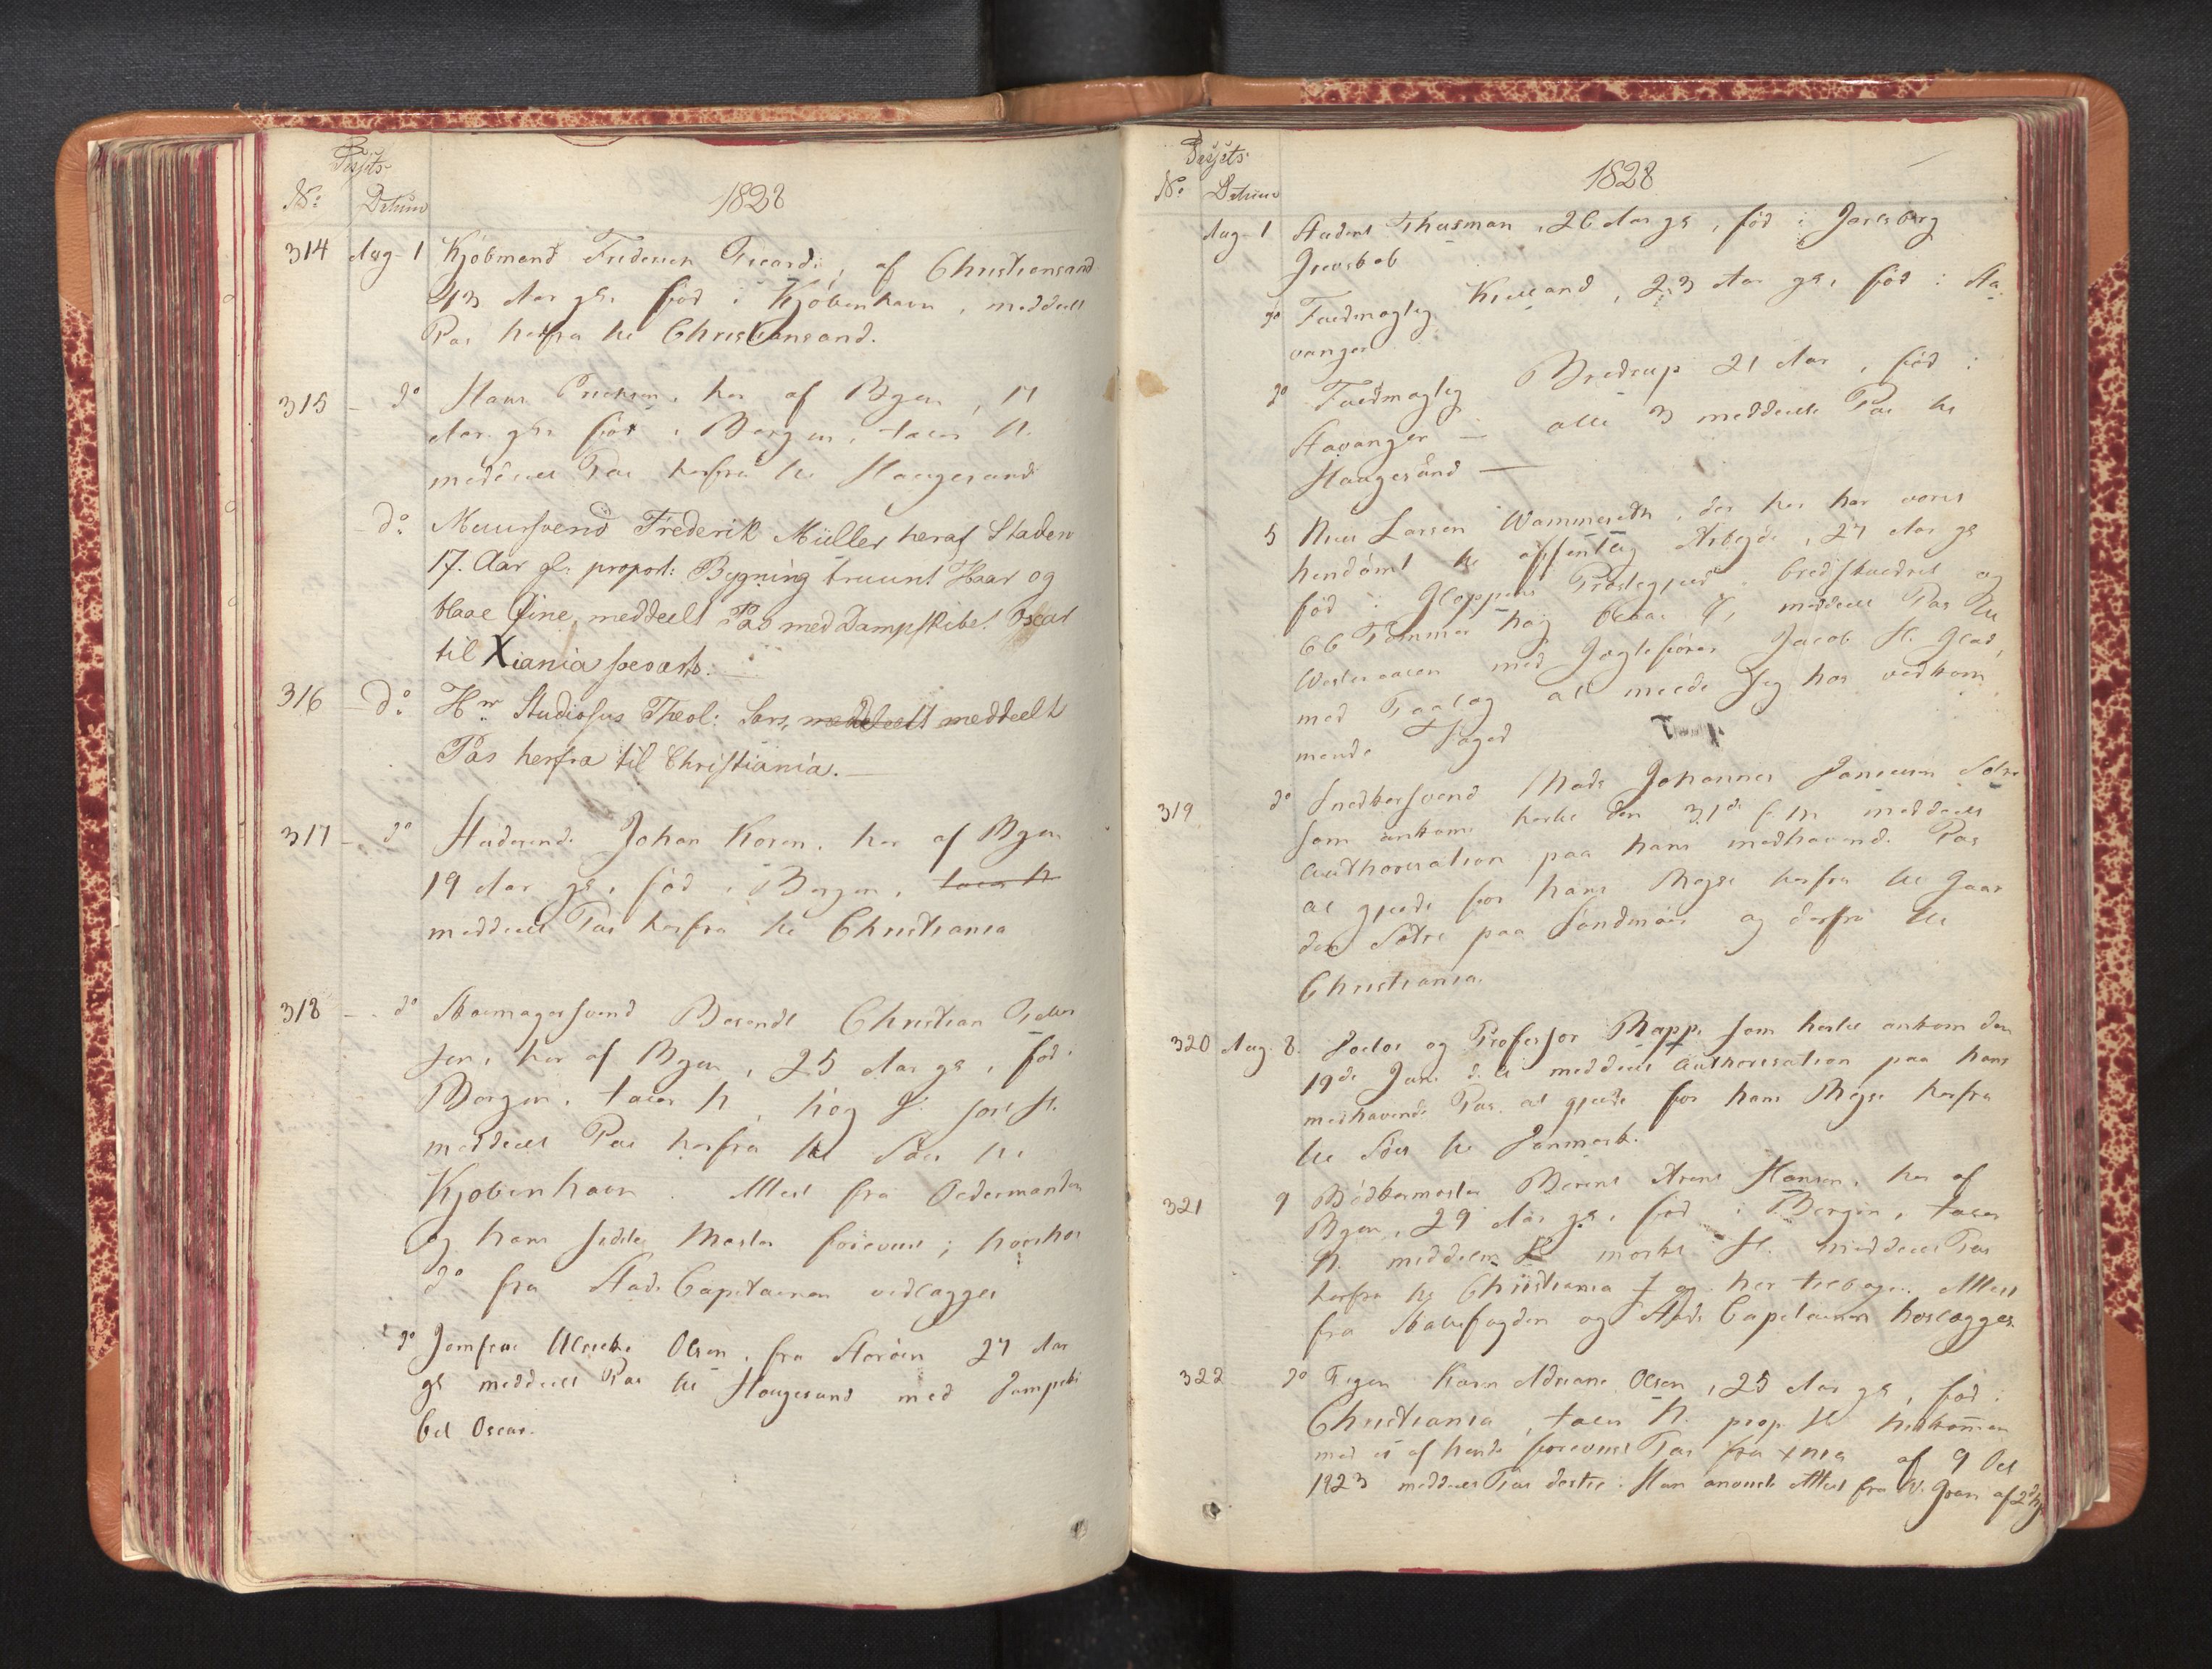 Passets
No: Datum 1828
314 Aug. 1 Kjöbmand Friderich Ficardi, af Christiansand
43 Aar gl. föd i Kjöbenhavn, meddeelt
Pas herfra til Christiansand.
315 - do Hans Erichsen, her af Byen, 17
Aar gl. föd i Bergen,
meddeelt Pas herfra til Haugesund
do Muursvend Frederik Müller heraf Staden
17. Aar gl: proport: Bygning bruunt Haar og
blaae Öine, meddeelt Pas med Dampskibet Oscar
til Xiania søeværts.
316 - do Hr Studiosus Theol: Sars, meddeelt meddeelt
Pas herfra til Christiania. —
317 - do Studerende Johan Koren, her af Byen
19 Aar gl, föd i Bergen,
meddeelt Pas herfra til Christiania
318 - do Skomagersvend Berendt Christian Peder
sen, her af Byen, 25 Aar gl, föd i
Bergen, sort H.
meddeelt Pas herfra til Söes til
Kjöbenhavn. Attest fra Oldermanden
og hans sidste Mester foreviist;
do fra Stads Capitainen vedlægges
do Jomfrue Ulricke Olsen, fra Storöen 27 Aar
gl meddeelt Pas til Haugesund med Dampski
bet Oscar.
Passets
No: Datum 1828
Aug. 1 Student Thusman, 26 Aar gl, föd i Jarlsberg
Grevskab
do Fuldmægtig Kielland, 23 Aar gl, föd i Sta
vanger
do Fuldmægtig Bredrup 21 Aar, föd i
Stavanger — alle 3 meddeelt Pas til
Haugesund —
5 Niels Larsen, der her har været
hendömt til offentlig Arbejde, 27 Aar gl
föd i Gloppens Præstegjeld, bredskuldret og
66 Tommer høj meddeelt Pas til
med Jægtefører Jacob H. Glad,
med Paalæg at melde sig hos vedkom
mende Foged
319 do Snedkersvend Mads Johannes Danielsen Sætre
som ankom hertil den 31de f. M. meddeelt
Authorisation paa hans medhavende Pas
at gjelde for hans Rejse herfra til Gaar
den Sætre paa Søndmør og derfra til
Christiania.
320 Aug. 8. Doctor og Professor Rapp, som hertil ankom den
19de Juni d. A. meddeelt Authorisation paa hans
medhavende Pas at gjelde for hans Rejse herfra
til Söes til Danmark.
321 9 Bödkermester Berent Arent Hansen, her af
Byen, 29 Aar gl. föd i Bergen,
mörkt H. meddeelt Pas
herfra til Christiania og her tilbage. Attest
fra og Stads Capitainen hoslægges
322 do Pigen Karen Adriane Olsen, 25 Aar gl, föd i
Christiania, hidkommen
med et af hende foreviist Pas fra Xnia af 9 Oct
1823 meddeelt Pas dertil.